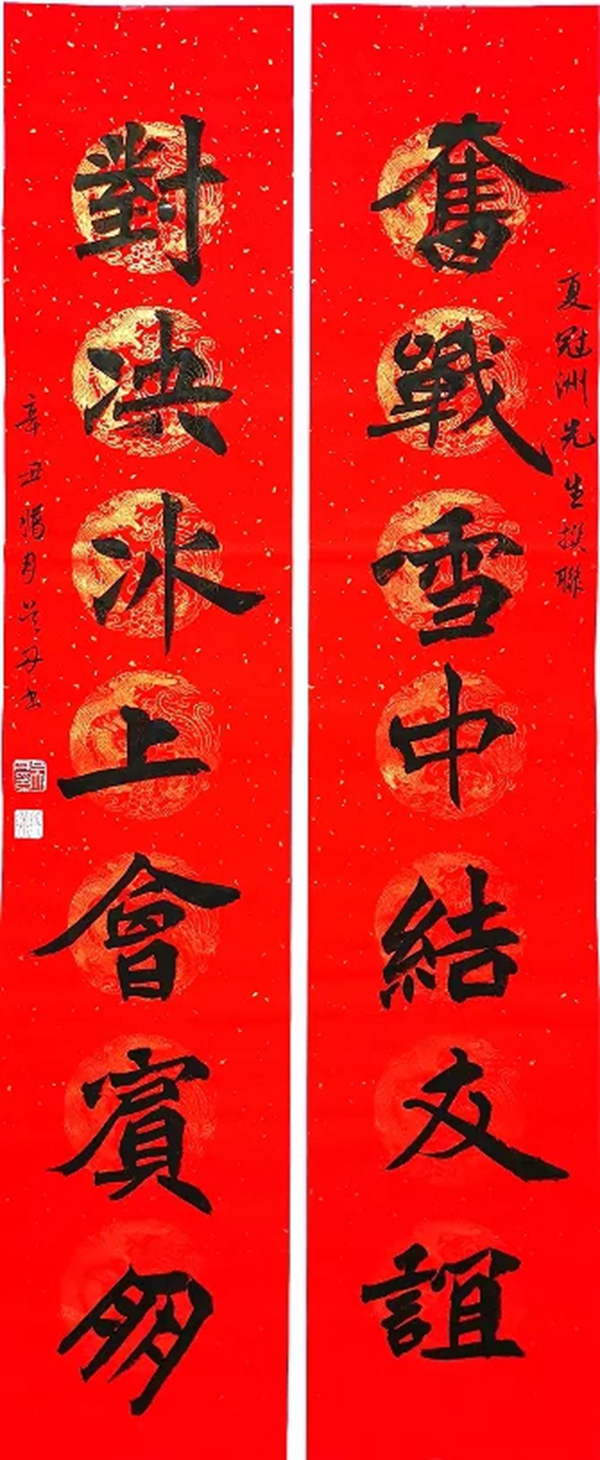 夏冠洲先生撰聯
奮戰雪中結友誼
對决冰上會賓朋
辛丑腊月丹书